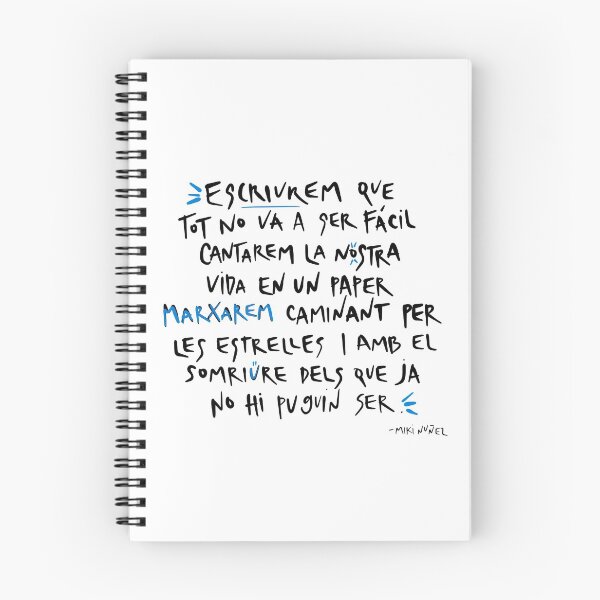 ESCRIUREM QUE
TOT NO VA A SER FÁCIL
CANTAREM LA NOSTRA
VIDA EN UN PAPER
MARXAREM CAMINANT PER
LES ESTRELLES I AMB EL
SOMRIURE DELS QUE JA
NO HI PUGUIN SER.
-MIKI NUÑEZ